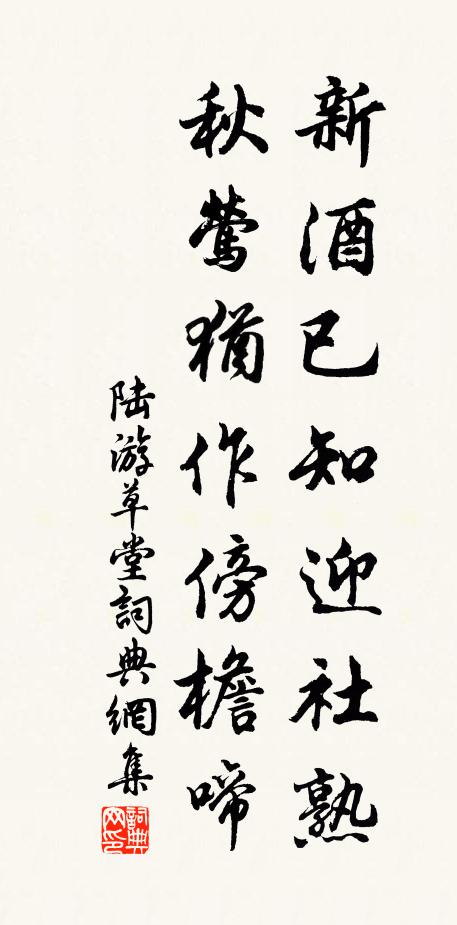 新酒已知迎社熟
秋鶯猶作傍檐啼
陆游草堂詞典網集
詞典网印